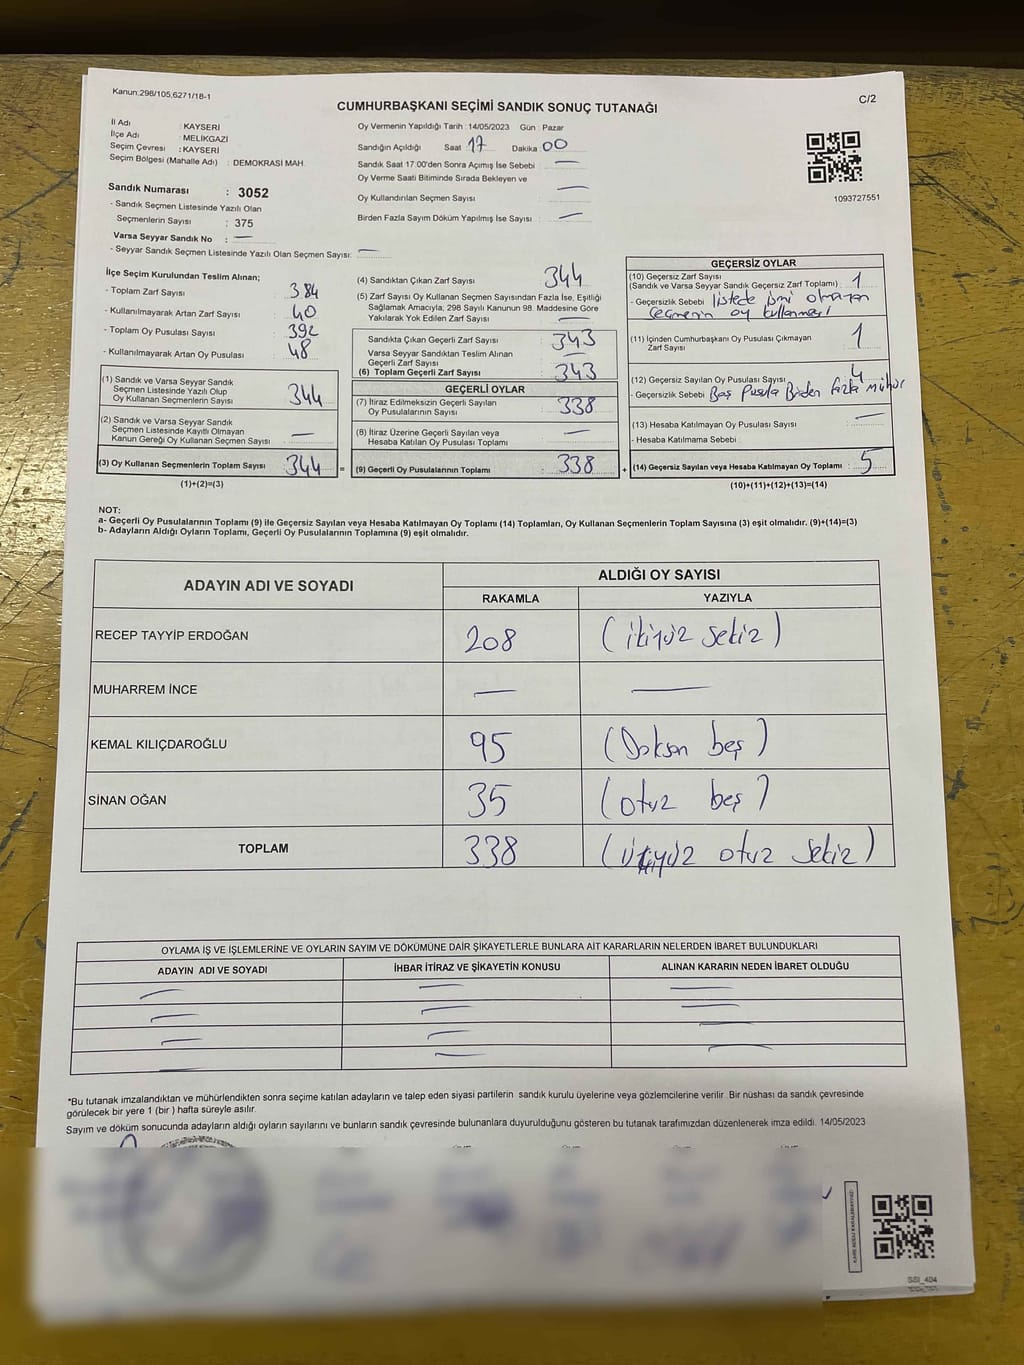 Kanun:298/105,6271/18-1
C/2
CUMHURBAŞKANI SEÇİMİ SANDIK SONUÇ TUTANAĞI
İl Adı : KAYSERİ
İlçe Adı : MELİKGAZİ
Seçim Çevresi : KAYSERİ
Seçim Bölgesi (Mahalle Adı) : DEMOKRASI MAH.
Sandık Numarası : 3052
- Sandık Seçmen Listesinde Yazılı Olan
Seçmenlerin Sayısı : 375
Varsa Seyyar Sandık No : —
- Seyyar Sandık Seçmen Listesinde Yazılı Olan Seçmen Sayısı: —
Oy Vermenin Yapıldığı Tarih : 14/05/2023 Gün : Pazar
Sandığın Açıldığı Saat 17 Dakika 00
Sandık Saat 17:00'den Sonra Açılmış İse Sebebi : —
Oy Verme Saati Bitiminde Sırada Bekleyen ve
Oy Kullandırılan Seçmen Sayısı : —
Birden Fazla Sayım Döküm Yapılmış İse Sayısı : —
1093727551
İlçe Seçim Kurulundan Teslim Alınan;
- Toplam Zarf Sayısı : 384
- Kullanılmayarak Artan Zarf Sayısı : 40
- Toplam Oy Pusulası Sayısı : 392
- Kullanılmayarak Artan Oy Pusulası : 48
(1) Sandık ve Varsa Seyyar Sandık
Seçmen Listesinde Yazılı Olup
Oy Kullanan Seçmenlerin Sayısı : 344
(2) Sandık ve Varsa Seyyar Sandık
Seçmen Listesinde Kayıtlı Olmayan
Kanun Gereği Oy Kullanan Seçmen Sayısı : —
(3) Oy Kullanan Seçmenlerin Toplam Sayısı : 344 =
(1)+(2)=(3)
(4) Sandıktan Çıkan Zarf Sayısı : 344
(5) Zarf Sayısı Oy Kullanan Seçmen Sayısından Fazla İse, Eşitliği
Sağlamak Amacıyla; 298 Sayılı Kanunun 98. Maddesine Göre
Yakılarak Yok Edilen Zarf Sayısı : —
Sandıkta Çıkan Geçerli Zarf Sayısı : 343
Varsa Seyyar Sandıktan Teslim Alınan
Geçerli Zarf Sayısı : —
(6) Toplam Geçerli Zarf Sayısı : 343
GEÇERLİ OYLAR
(7) İtiraz Edilmeksizin Geçerli Sayılan
Oy Pusulalarının Sayısı : 338
(8) İtiraz Üzerine Geçerli Sayılan veya
Hesaba Katılan Oy Pusulası Toplamı : —
(9) Geçerli Oy Pusulalarının Toplamı : 338 +
GEÇERSİZ OYLAR
(10) Geçersiz Zarf Sayısı
(Sandık ve Varsa Seyyar Sandık Geçersiz Zarf Toplamı) : 1
- Geçersizlik Sebebi : listede ismi olmayan
seçmenin oy kullanması
(11) İçinden Cumhurbaşkanı Oy Pusulası Çıkmayan
Zarf Sayısı : 1
(12) Geçersiz Sayılan Oy Pusulası Sayısı : 4
- Geçersizlik Sebebi : Boş Pusula Birden fazla mühür
(13) Hesaba Katılmayan Oy Pusulası Sayısı : —
- Hesaba Katılmama Sebebi :
(14) Geçersiz Sayılan veya Hesaba Katılmayan Oy Toplamı : 5
(10)+(11)+(12)+(13)=(14)
NOT:
a- Geçerli Oy Pusulalarının Toplamı (9) ile Geçersiz Sayılan veya Hesaba Katılmayan Oy Toplamı (14) Toplamları, Oy Kullanan Seçmenlerin Toplam Sayısına (3) eşit olmalıdır. (9)+(14)=(3)
b- Adayların Aldığı Oyların Toplamı, Geçerli Oy Pusulalarının Toplamına (9) eşit olmalıdır.
ADAYIN ADI VE SOYADI
ALDIĞI OY SAYISI
RAKAMLA YAZIYLA
RECEP TAYYİP ERDOĞAN 208 (ikiyüz sekiz)
MUHARREM İNCE — —
KEMAL KILIÇDAROĞLU 95 (Doksan beş)
SİNAN OĞAN 35 (otuz beş)
TOPLAM 338 (üçyüz otuz sekiz)
OYLAMA İŞ VE İŞLEMLERİNE VE OYLARIN SAYIM VE DÖKÜMÜNE DAİR ŞİKAYETLERLE BUNLARA AİT KARARLARIN NELERDEN İBARET BULUNDUKLARI
ADAYIN ADI VE SOYADI İHBAR İTİRAZ VE ŞİKAYETİN KONUSU ALINAN KARARIN NEDEN İBARET OLDUĞU
*Bu tutanak imzalandıktan ve mühürlendikten sonra seçime katılan adayların ve talep eden siyasi partilerin sandık kurulu üyelerine veya gözlemcilerine verilir. Bir nüshası da sandık çevresinde
görülecek bir yere 1 (bir ) hafta süreyle asılır.
Sayım ve döküm sonucunda adayların aldığı oyların sayılarını ve bunların sandık çevresinde bulunanlara duyurulduğunu gösteren bu tutanak tarafımızdan düzenlenerek imza edildi. 14/05/2023
SSI_404